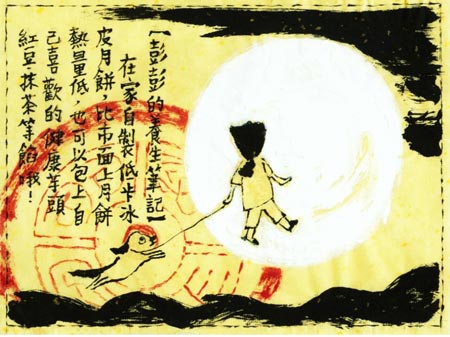 【彭彭的養生筆記】
在家自製低卡冰
皮月餅,比市面上月餅
熱量低,也可以包上自
己喜歡的健康芋頭
紅豆、抹茶等餡哦!